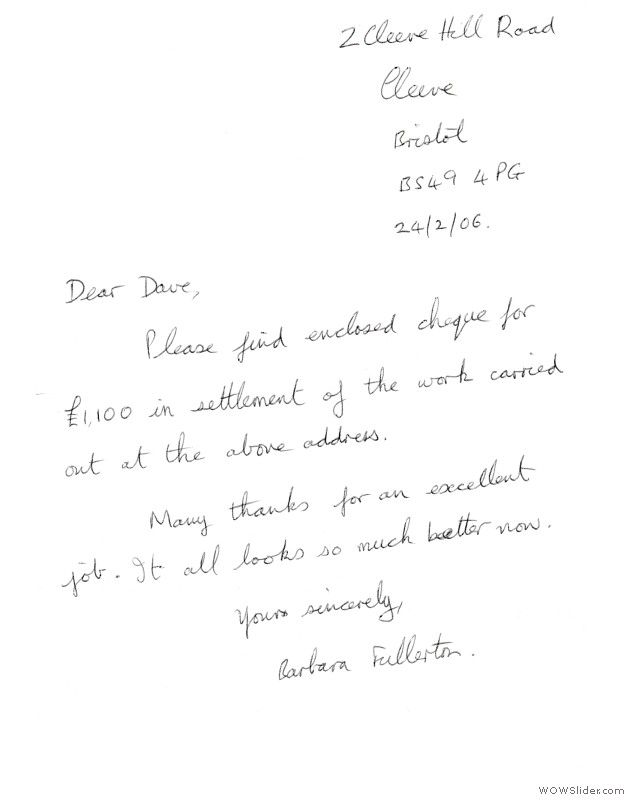 2 Cleeve Hill Road
Cleeve
Bristol
BS49 4PG
24/2/06.
Dear Dave,
Please find enclosed cheque for
£1,100 in settlement of the work carried
out at the above address.
Many thanks for an excellent
job. It all looks so much better now.
Yours sincerely,
Barbara Fullerton.
WOWSlider.com